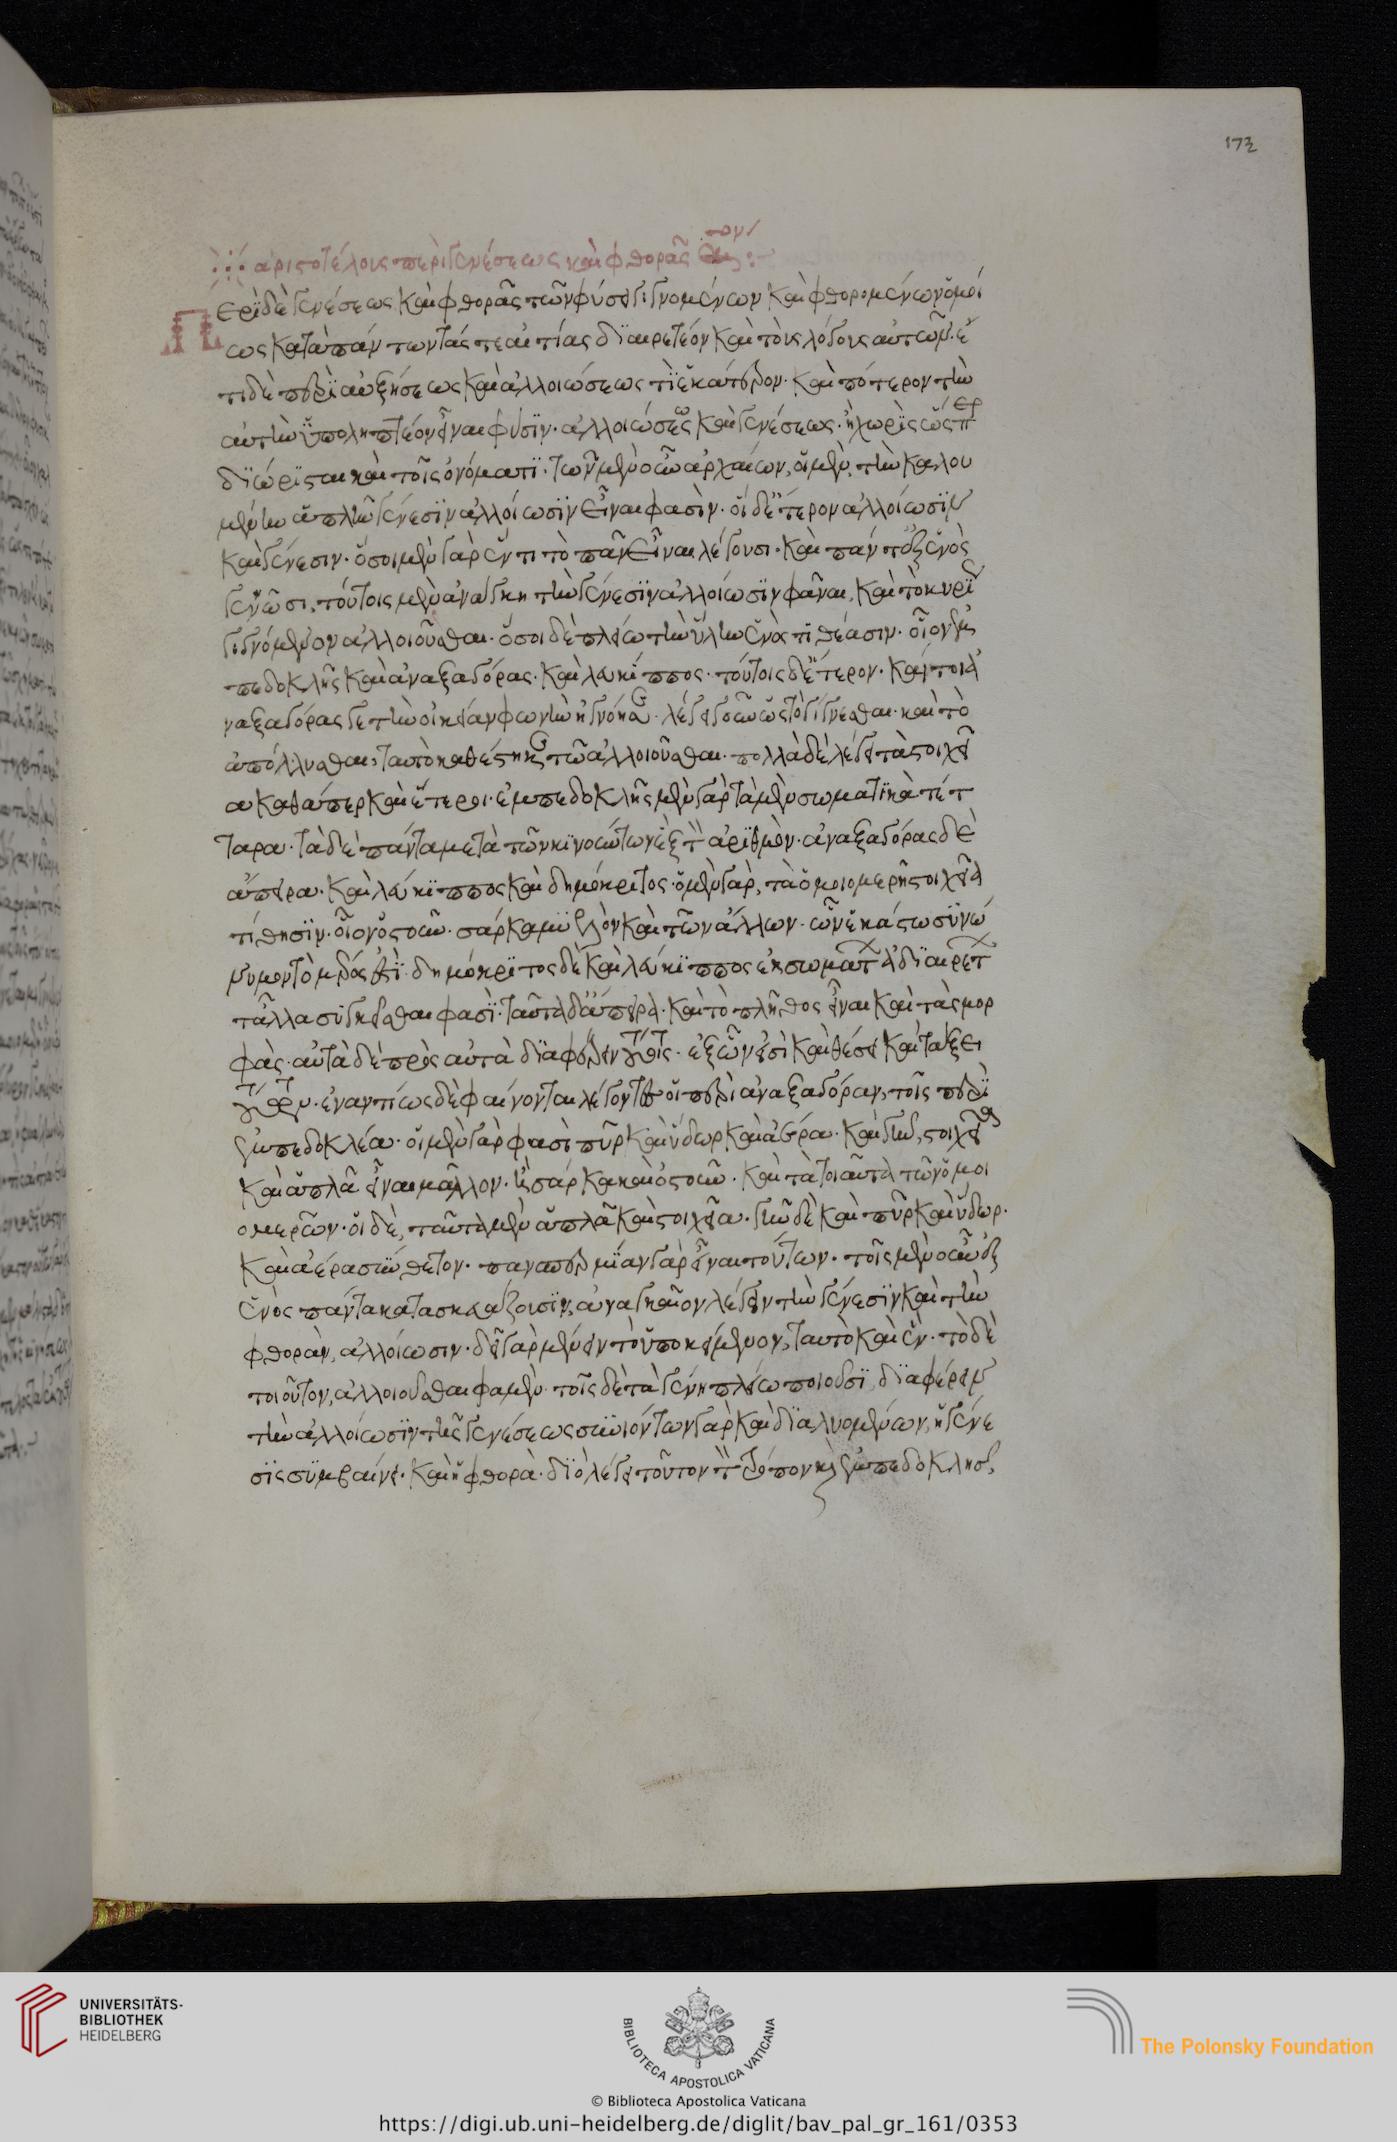 173
ἀριστοτέλους περὶ γενέσεως καὶ φθορᾶς τὸ πρῶτον:
Περὶ δὲ γενέσεως καὶ φθορᾶς τῶν φύσει γιγνομένων καὶ φθορομένων ὁμοί
ως κατα πάντων τάς τε αἰτίας διαιρετέον καὶ τοὺς λόγους αὐτῶν· ἔ
τι δὲ περὶ αὐξήσεως καὶ ἀλλοιώσεως τί ἑκάτερον· καὶ πότερον τὴν
αὐτὴν ὑποληπτέον εἶναι φύσιν· ἀλλοιώσεως καὶ γενέσεως· ἢ χωρὶς ὥσπερ
διώρισται καὶ τοῖς ὀνόμασι· τῶν μὲν οὖν ἀρχαίων, οἱ μὲν, τὴν καλου
μένην ἁπλῆν γένεσιν ἀλλοίωσιν εἶναι φασὶν· οἱ δ' ἕτερον ἀλλοίωσιν
καὶ γένεσιν· ὅσοι μὲν γὰρ ἕν τι τὸ πᾶν εἶναι λέγουσι· καὶ πάντ' ἐξ ἑνὸς
γεννῶσι, τούτοις μὲν ἀνάγκη τὴν γένεσιν ἀλλοίωσιν φᾶναι, καὶ τὸ κυρί
γιγνόμενον ἀλλοιοῦσθαι· ὅσοι δὲ πλείω τὴν ὕλην ἑνὸς τιθέασιν· οἷον ἐμ
πεδοκλῆς καὶ ἀναξαγόρας· καὶ λεύκιππος· τούτοις δ' ἕτερον· καί τοι ἀ
ναξαγόρας γε τὴν οἰκείαν φωνὴν ἠγνόησεν· λέγει γοῦν ὡς τὸ γίγνεσθαι· καὶ τὸ
ἀπόλλυσθαι, ταυτὸ καθέστηκε τῶ ἀλλοιοῦσθαι· πολλὰ δὲ λέγει τὰ στοιχεῖ
α καθάπερ καὶ ἕτεροι· ἐμπεδοκλῆς μὲν γὰρ τὰ μὲν σωματικὰ τέτ
ταρα· τὰ δὲ πάντα μετὰ τῶν κινούντων ἓξ τὸν ἀριθμὸν· ἀναξαγόρας δὲ
ἄπειρα· καὶ λεύκιππος καὶ δημόκριτος· ὁ μὲν γὰρ, τὰ ὁμοιομερῆ στοιχεῖα
τίθησιν· οἷον ὀστοῦν· σάρκα μυελὸν καὶ τῶν ἄλλων· ὧν ἑκάστω συνώ
νυμον τὸ μέρος ἐστὶ· δημόκριτος δὲ καὶ λεύκιππος ἐκ σωμάτων ἀδιαιρέτων
τἆλλα συγκεῖσθαι φασὶ· ταῦτα δ' ἄπειρα· καὶ τὸ πλῆθος εἶναι καὶ τὰς μορ
φὰς· αὐτὰ δὲ πρὸς αὐτὰ διαφέρειν τούτοις· ἐξ ὧν εἰσὶ καὶ θέσει καὶ τάξει
τούτων· ἐναντίως δὲ φαίνονται λέγοντες οἱ περὶ ἀναξαγόραν, τοῖς περὶ
ἐμπεδοκλέα· οἱ μὲν γάρ φασὶ πῦρ καὶ ὕδωρ καὶ ἀέρα· καὶ γῆν, στοιχεῖα
καὶ ἁπλᾶ εἶναι μᾶλλον· ἢ σάρκα καὶ ὀστοῦν· καὶ τὰ τοιαῦτα τῶν ὁμοι
ομερῶν· οἱ δὲ, ταῦτα μὲν ἁπλᾶ καὶ στοιχεῖα· γῆν δὲ καὶ πῦρ καὶ ὕδωρ·
καὶ ἀέρα σύνθετον· πανσπερμίαν γὰρ εἶναι τούτων· τοῖς μὲν οὖν ἐξ
ἑνὸς πάντα κατασκευάζουσιν, ἀναγκαῖον λέγειν τὴν γένεσιν καὶ τὴν
φθορὰν, ἀλλοίωσιν· δεῖ γὰρ μένειν τὸ ὑποκείμενον, ταυτὸ καὶ ἓν· τὸ δὲ
τοιοῦτον, ἀλλοιοῦσθαι φαμὲν· τοῖς δὲ τὰ γένη πλείω ποιοῦσι, διαφέρειν
τὴν ἀλλοίωσιν τῆς γενέσεως συνιόντων γὰρ καὶ διαλυομένων, ἡ γένε
σις συμβαίνει· καὶ ἡ φθορὰ· διὸ λέγει τοῦτον τὸν τρόπον καὶ ἐμπεδοκλῆς,
UNIVERSITÄTS-
BIBLIOTHEK
HEIDELBERG
BIBLIOTECA APOSTOLICA VATICANA
The Polonsky Foundation
© Biblioteca Apostolica Vaticana
https://digi.ub.uni-heidelberg.de/diglit/bav_pal_gr_161/0353